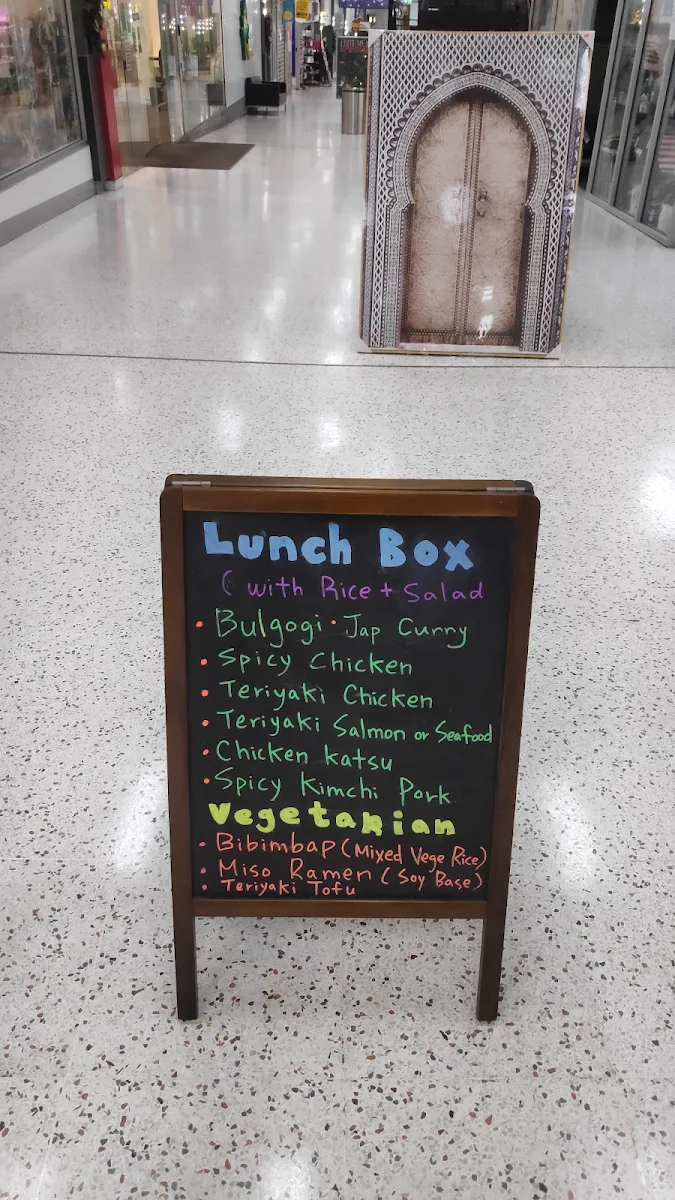 Lunch Box
( with Rice + Salad
• Bulgogi • Jap Curry
• Spicy Chicken
• Teriyaki Chicken
• Teriyaki Salmon or Seafood
• Chicken katsu
• Spicy Kimchi Pork
Vegetarian
• Bibimbap (Mixed Vege Rice)
• Miso Ramen (Soy Base)
• Teriyaki Tofu